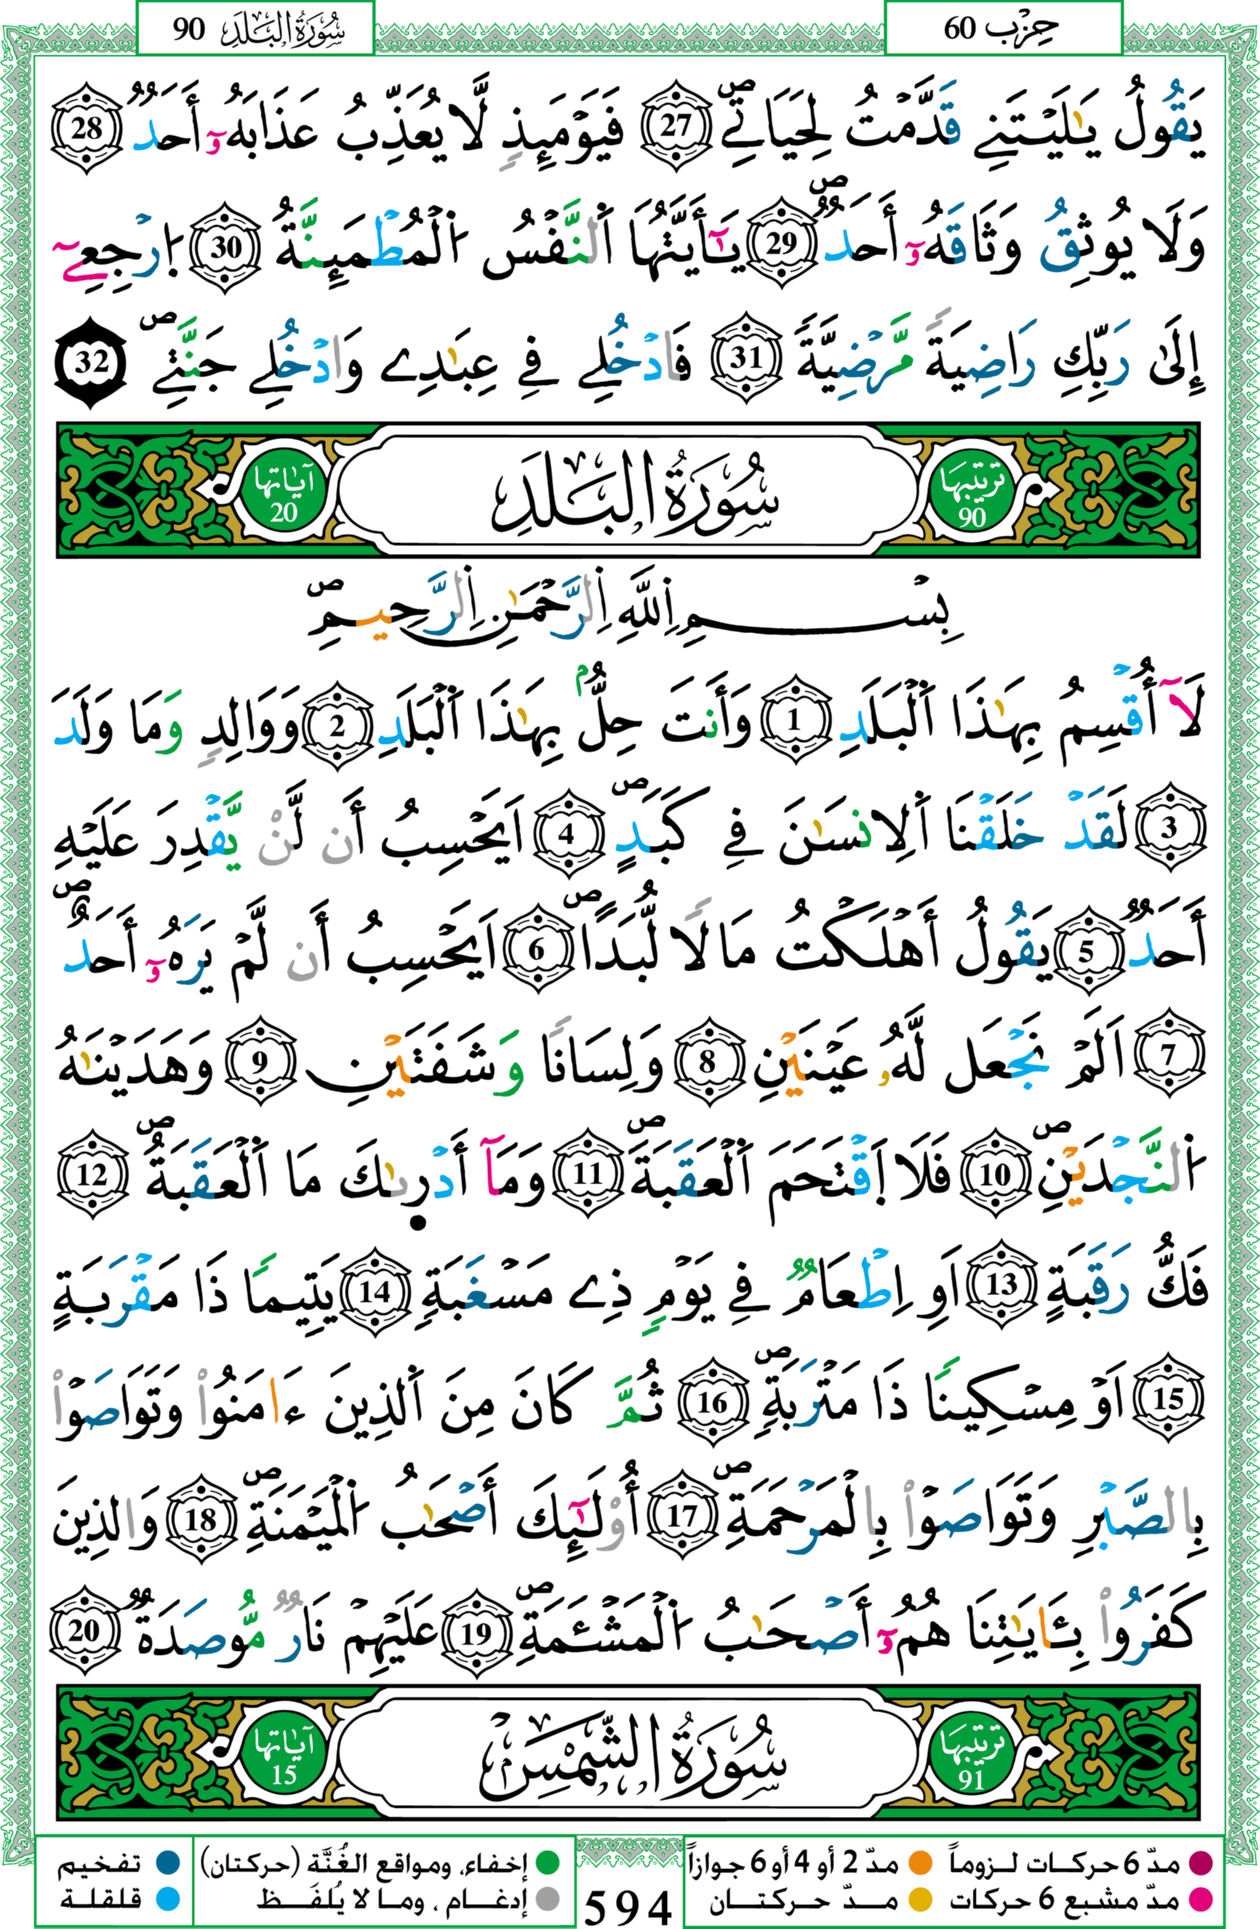 حزب 60
سُورَةُ الْبَلَدِ 90
يَقُولُ يَٰلَيْتَنِے قَدَّمْتُ لِحَيَاتِےۖ 27 فَيَوْمَئِذٖ لَّا يُعَذِّبُ عَذَابَهُۥٓ أَحَدٞ 28
وَلَا يُوثِقُ وَثَاقَهُۥٓ أَحَدٞۖ 29 يَٰٓأَيَّتُهَا اَ۬لنَّفْسُ اُ۬لْمُطْمَئِنَّةُ 30 اُ۪رْجِعِےٓ
إِلَىٰ رَبِّكِ رَاضِيَةٗ مَّرْضِيَّةٗ 31 فَادْخُلِے فِے عِبَٰدِے وَادْخُلِے جَنَّتِےۖ 32
ترتيبها 90
سُورَةُ الْبَلَدِ
آياتها 20
بِسْمِ اِ۬للَّهِ اِ۬لرَّحْمَٰنِ اِ۬لرَّحِيمِۖ
لَآ أُقْسِمُ بِهَٰذَا اَ۬لْبَلَدِ 1 وَأَنتَ حِلُّۢ بِهَٰذَا اَ۬لْبَلَدِ 2 وَوَالِدٖ وَمَا وَلَدَ
3 لَقَدْ خَلَقْنَا اَ۬لِانسَٰنَ فِے كَبَدٍۖ 4 اَيَحْسِبُ أَن لَّنْ يَّقْدِرَ عَلَيْهِ
أَحَدٞ 5 يَقُولُ أَهْلَكْتُ مَالاٗ لُّبَداًۖ 6 اَيَحْسِبُ أَن لَّمْ يَرَهُۥٓ أَحَدٌۖ
7 اَلَمْ نَجْعَل لَّهُۥ عَيْنَيْنِ 8 وَلِسَاناٗ وَشَفَتَيْنِ 9 وَهَدَيْنَٰهُ
اُ۬لنَّجْدَيْنِۖ 10 فَلَا اَ۪قْتَحَمَ اَ۬لْعَقَبَةَۖ 11 وَمَآ أَدْر۪ىٰكَ مَا اَ۬لْعَقَبَةُۖ 12
فَكُّ رَقَبَةٍ 13 اَوِ اِطْعَٰمٞ فِے يَوْمٖ ذِے مَسْغَبَةٖ 14 يَتِيماٗ ذَا مَقْرَبَةٍ
15 اَوْ مِسْكِيناٗ ذَا مَتْرَبَةٖۖ 16 ثُمَّ كَانَ مِنَ اَ۬لذِينَ ءَامَنُواْ وَتَوَاصَوْاْ
بِالصَّبْرِ وَتَوَاصَوْاْ بِالْمَرْحَمَةِۖ 17 أُوْلَٰٓئِكَ أَصْحَٰبُ اُ۬لْمَيْمَنَةِۖ 18 وَالذِينَ
كَفَرُواْ بِـَٔايَٰتِنَا هُمُۥٓ أَصْحَٰبُ اُ۬لْمَشْـَٔمَةِۖ 19 عَلَيْهِمْ نَارٞ مُّوصَدَةٞۖ 20
ترتيبها 91
سُورَةُ الشَّمْسِ
آياتها 15
مدّ 6 حركات لـزوماً مدّ 2 أو 4 أو 6 جوازاً
مدّ مشبع 6 حركات مـدّ حركتـان
594
إخفاء، ومواقع الغُنَّة (حركتان) تفخيم
إدغـام ، ومـا لا يُلفَـظ قلقلة